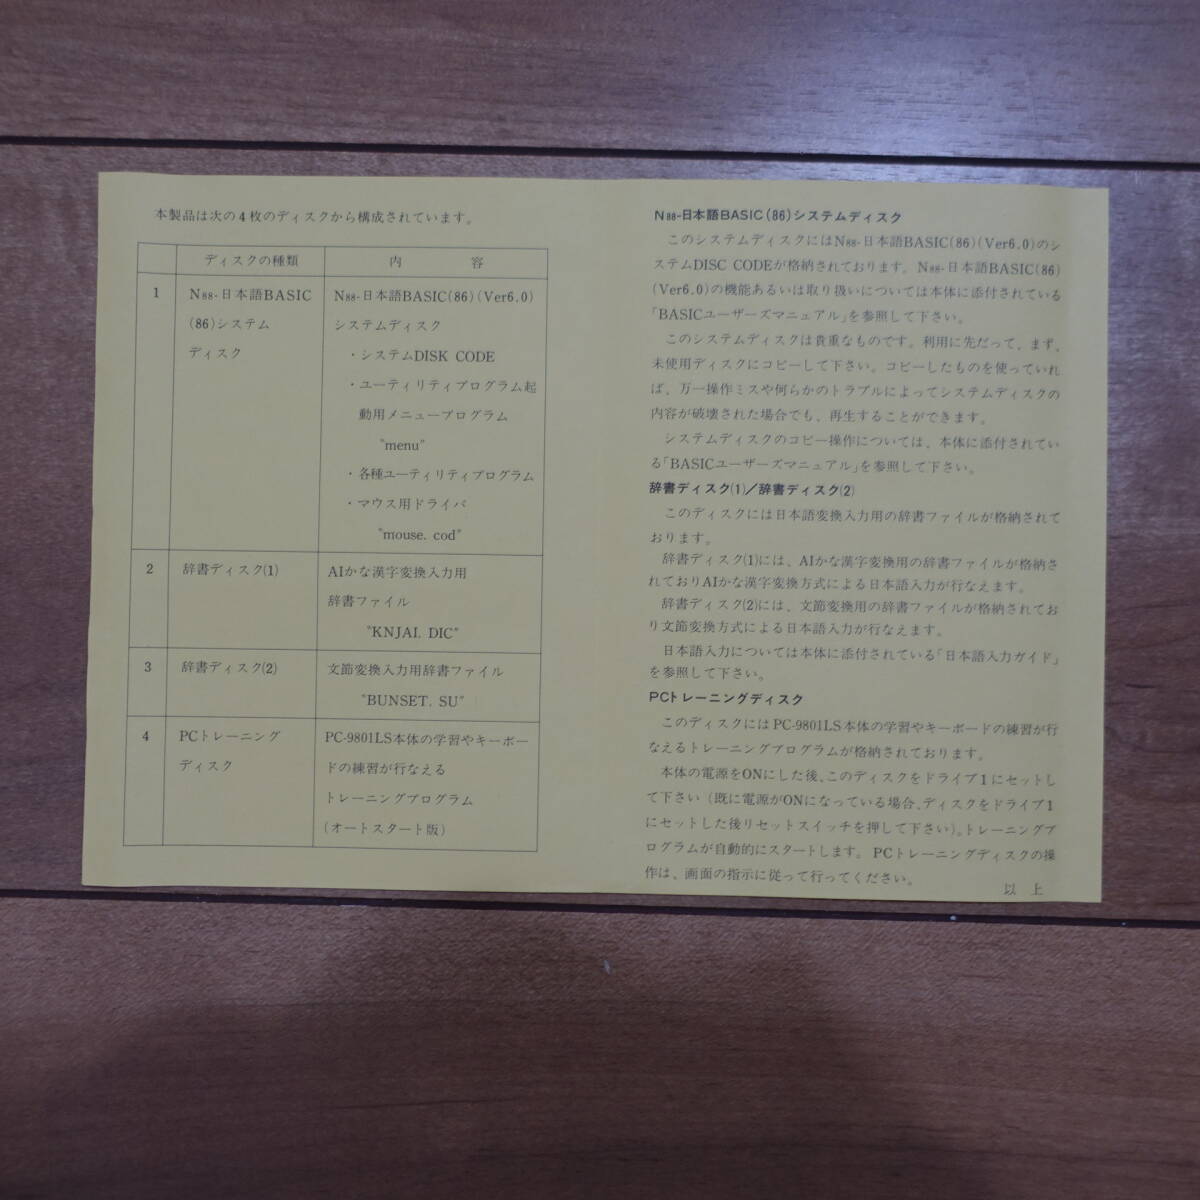 本製品は次の4枚のディスクから構成されています。
ディスクの種類 内 容
1 N88-日本語BASIC N88-日本語BASIC(86)(Ver6.0)
(86)システム システムディスク
ディスク ・システムDISK CODE
・ユーティリティプログラム起
動用メニュープログラム
"menu"
・各種ユーティリティプログラム
・マウス用ドライバ
"mouse. cod"
2 辞書ディスク(1) AIかな漢字変換入力用
辞書ファイル
"KNJAI. DIC"
3 辞書ディスク(2) 文節変換入力用辞書ファイル
"BUNSET. SU"
4 PCトレーニング PC-9801LS本体の学習やキーボー
ディスク ドの練習が行なえる
トレーニングプログラム
(オートスタート版)
N88-日本語BASIC(86)システムディスク
このシステムディスクにはN88-日本語BASIC(86)(Ver6.0)のシ
ステムDISC CODEが格納されております。N88-日本語BASIC(86)
(Ver6.0)の機能あるいは取り扱いについては本体に添付されている
「BASICユーザーズマニュアル」を参照して下さい。
このシステムディスクは貴重なものです。利用に先だって、まず、
未使用ディスクにコピーして下さい。コピーしたものを使っていれ
ば、万一操作ミスや何らかのトラブルによってシステムディスクの
内容が破壊された場合でも、再生することができます。
システムディスクのコピー操作については、本体に添付されてい
る「BASICユーザーズマニュアル」を参照して下さい。
辞書ディスク(1)/辞書ディスク(2)
このディスクには日本語変換入力用の辞書ファイルが格納されて
おります。
辞書ディスク(1)には、AIかな漢字変換用の辞書ファイルが格納さ
れておりAIかな漢字変換方式による日本語入力が行なえます。
辞書ディスク(2)には、文節変換用の辞書ファイルが格納されてお
り文節変換方式による日本語入力が行なえます。
日本語入力については本体に添付されている「日本語入力ガイド」
を参照して下さい。
PCトレーニングディスク
このディスクにはPC-9801LS本体の学習やキーボードの練習が行
なえるトレーニングプログラムが格納されております。
本体の電源をONにした後、このディスクをドライブ1にセットし
て下さい(既に電源がONになっている場合、ディスクをドライブ1
にセットした後リセットスイッチを押して下さい)。トレーニングプ
ログラムが自動的にスタートします。PCトレーニングディスクの操
作は、画面の指示に従って行ってください。
以 上